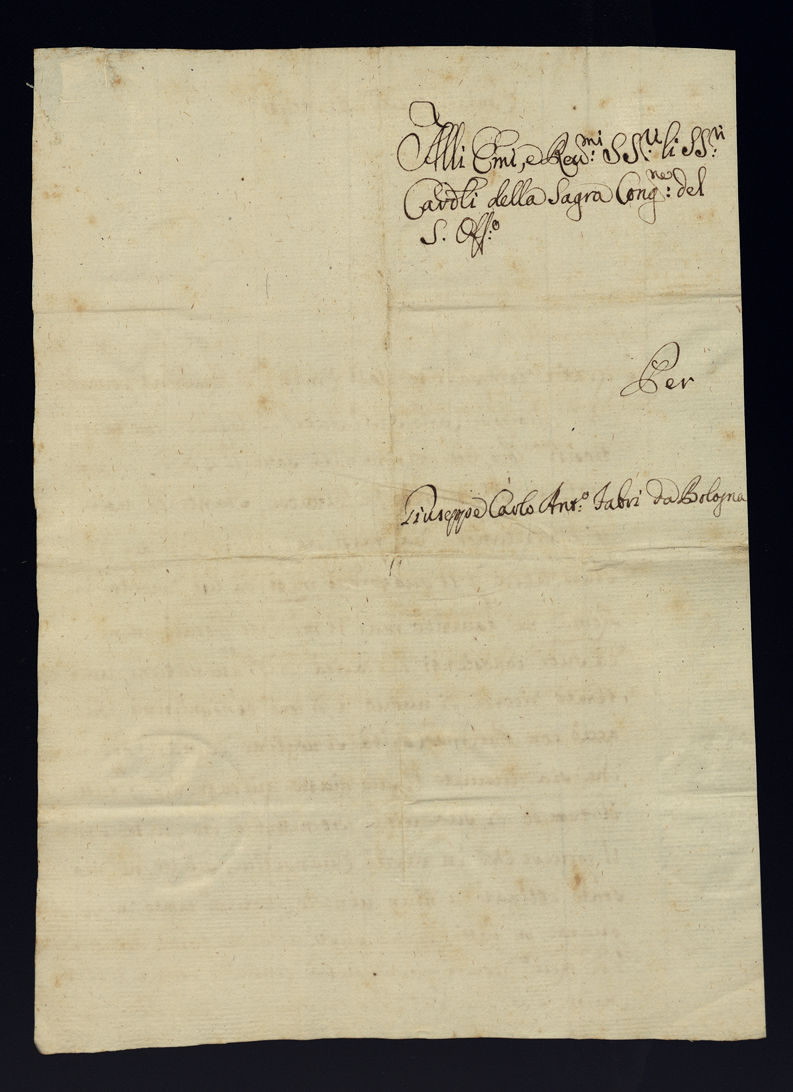 Alli Emi, e Reu:mi SS:ri li SS:ri
Cardli della Sagra Cong:ne del
S. Off:o
Per
Giuseppe Carlo Ant:o Fabri da Bologna